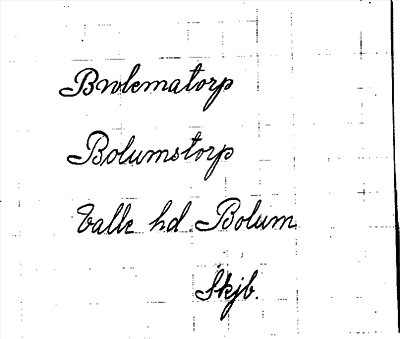 Bwlematorp
Bolumstorp
Valle hd. Bolum
Skjb.